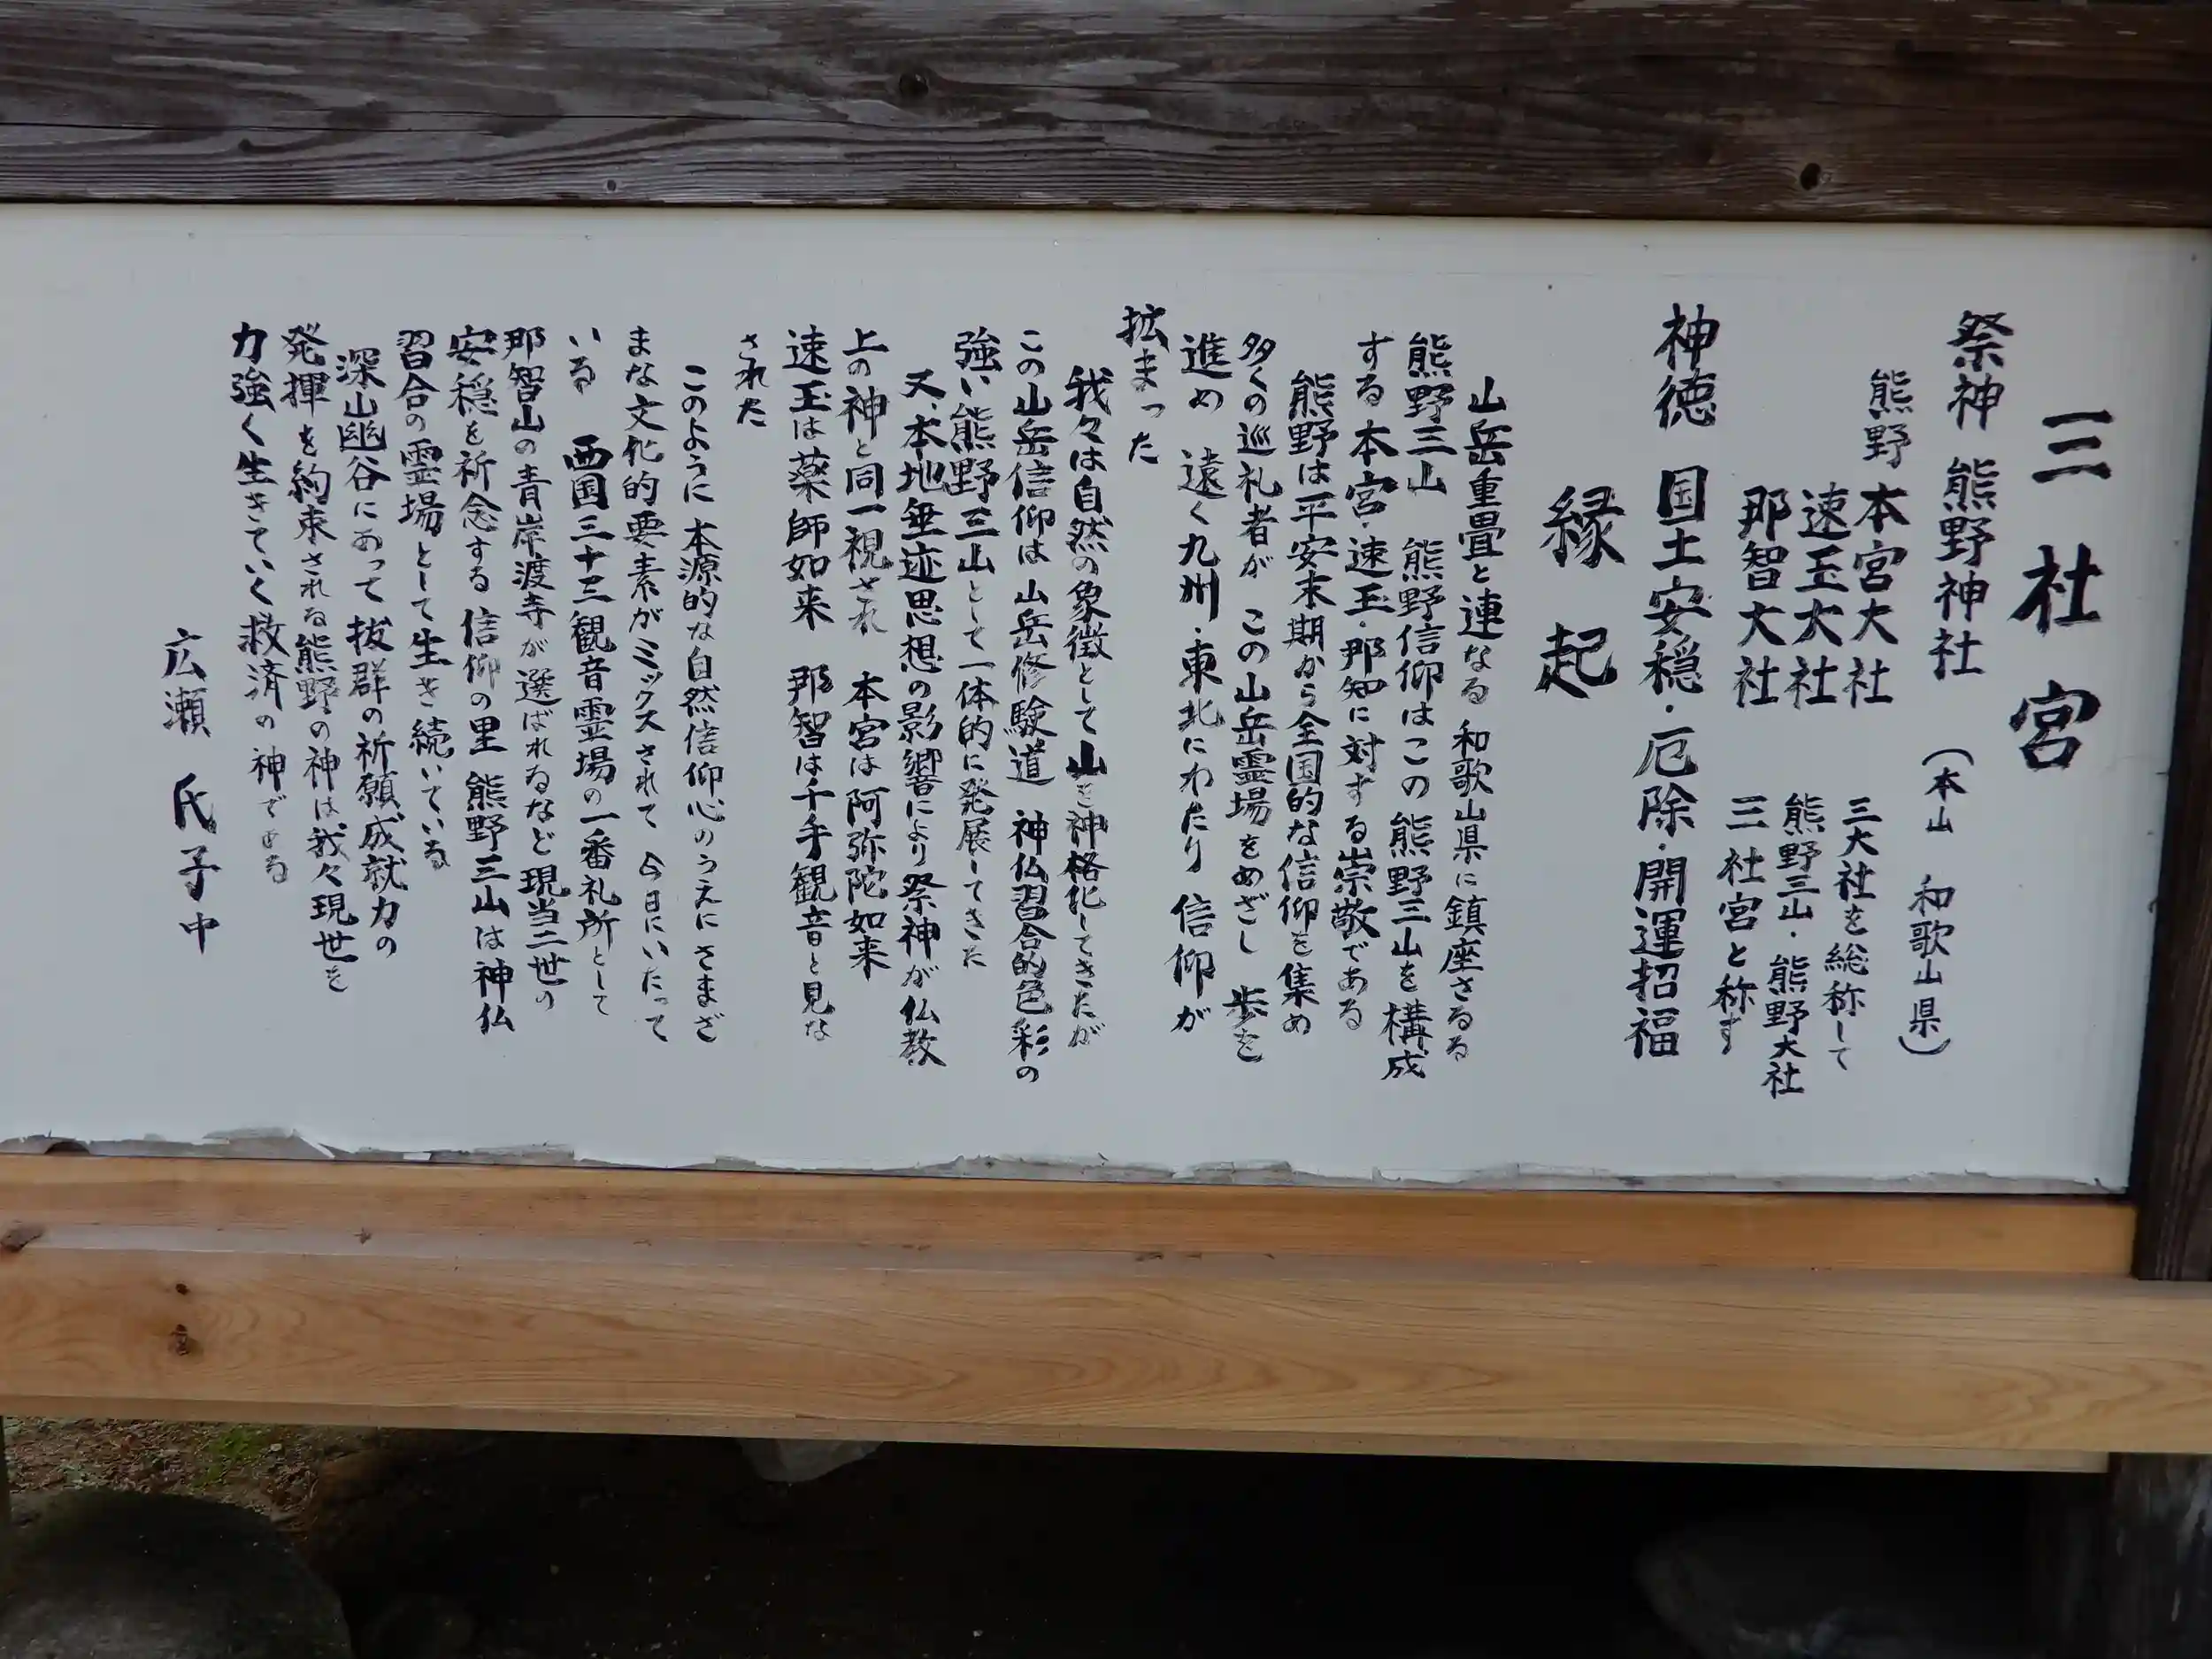 三社宮
祭神 熊野神社 (本山 和歌山県)
熊野 本宮大社
速玉大社
那智大社
三大社を総称して
熊野三山・熊野大社
三社宮と称す
神徳 国土安穏・厄除・開運招福
縁起
山岳重畳と連なる 和歌山県に鎮座さるる
熊野三山 熊野信仰はこの熊野三山を構成
する本宮・速玉・那知に対する崇敬である
熊野は平安末期から全国的な信仰を集め
多くの巡礼者が この山岳霊場をめざし 歩を
進め 遠く九州・東北にわたり 信仰が
拡まった
我々は自然の象徴として山を神格化してきたが
この山岳信仰は 山岳修験道 神仏習合的色彩の
強い熊野三山として一体的に発展してきた
又、本地垂迹思想の影響により祭神が仏教
上の神と同一視され 本宮は阿弥陀如来
速玉は薬師如来 那智は千手観音と見な
された
このように 本源的な自然信仰心のうえにさまざ
まな文化的要素がミックスされて 今日にいたって
いる 西国三十三観音霊場の一番礼所として
那智山の青岸渡寺が選ばれるなど現当二世の
安穏を祈念する 信仰の里 熊野三山は神仏
習合の霊場として生き続いている
深山幽谷にあって 抜群の祈願成就力の
発揮を約束される熊野の神は我々現世を
力強く生きていく救済の神である
広瀬 氏子中